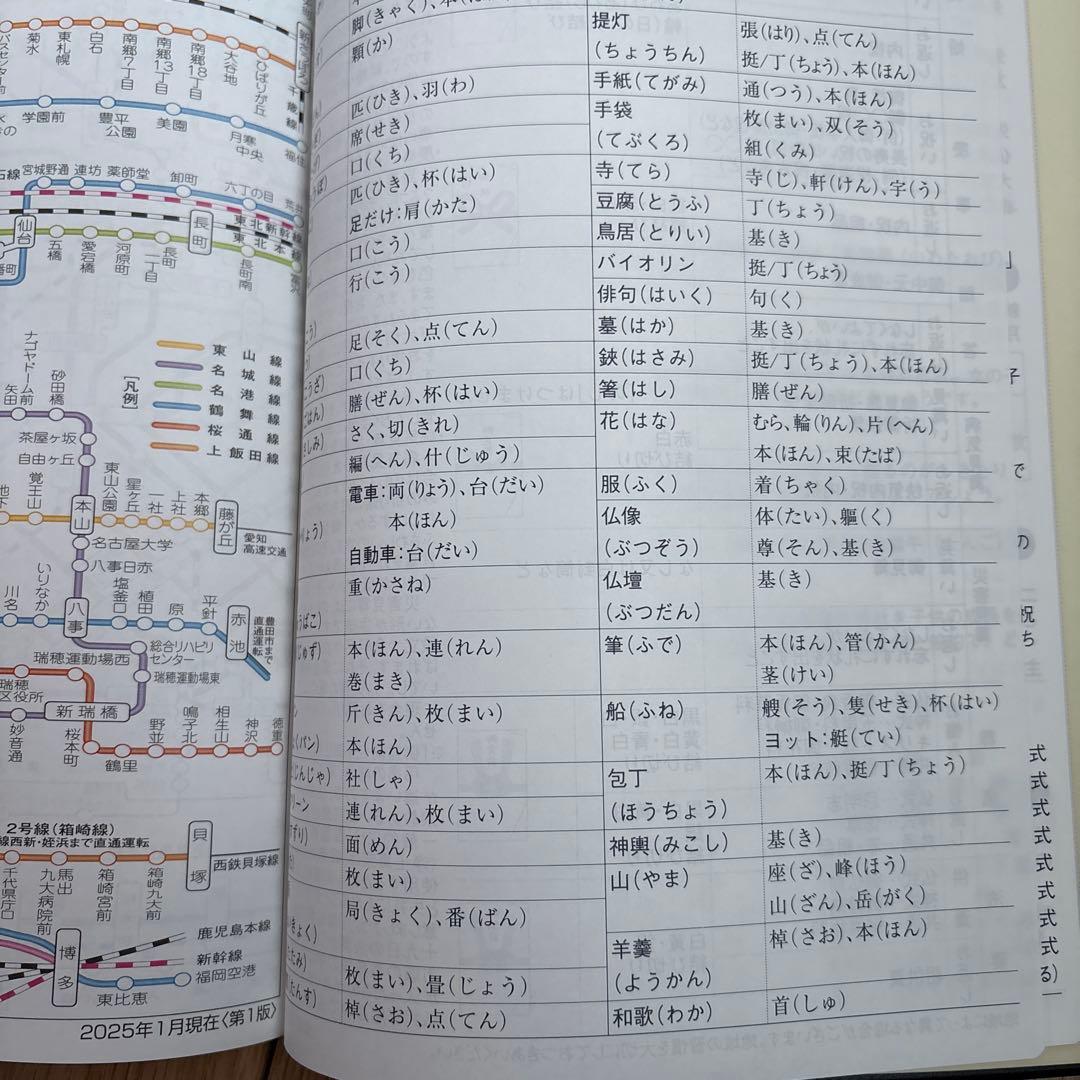 菊水
東札幌
白石
南郷7丁目
南郷13丁目
南郷18丁目
大谷地
ひばりが丘
学園前
豊平公園
美園
月寒中央
宮城野通
連坊
薬師堂
卸町
六丁の目
仙台
長町
東北新幹線
東北本線
五橋
愛宕橋
河原町
長町一丁目
長町南
[凡例]
東山線
名城線
名港線
鶴舞線
桜通線
上飯田線
ナゴヤドーム前
矢田
砂田橋
茶屋ヶ坂
自由ヶ丘
覚王山
本山
東山公園
星ヶ丘
一社
上社
本郷
藤が丘
愛知高速交通
名古屋大学
八事日赤
川名
いりなか
八事
塩釜口
植田
原
平針
赤池
豊田市まで直通運転
総合リハビリセンター
瑞穂運動場西
瑞穂運動場東
瑞穂区役所
新瑞橋
妙音通
桜本町
鶴里
野並
鳴子北
相生山
神沢
徳重
2号線(箱崎線)
線西新・姪浜まで直通運転
貝塚
西鉄貝塚線
千代県庁口
馬出九大病院前
箱崎宮前
箱崎九大前
博多
鹿児島本線
新幹線
福岡空港
東比恵
2025年1月現在〈第1版〉
脚(きゃく)
顆(か)
匹(ひき)、羽(わ)
席(せき)
口(くち)
匹(ひき)、杯(はい)
足だけ：肩(かた)
口(こう)
行(こう)
足(そく)、点(てん)
口(くち)
膳(ぜん)、杯(はい)
さく、切(きれ)
編(へん)、什(じゅう)
電車：両(りょう)、台(だい)
本(ほん)
自動車：台(だい)
重(かさね)
本(ほん)、連(れん)
巻(まき)
斤(きん)、枚(まい)
本(ほん)
社(しゃ)
連(れん)、枚(まい)
面(めん)
枚(まい)
局(きょく)、番(ばん)
枚(まい)、畳(じょう)
棹(さお)、点(てん)
提灯 張(はり)、点(てん)
(ちょうちん) 挺/丁(ちょう)、本(ほん)
手紙(てがみ) 通(つう)、本(ほん)
手袋 枚(まい)、双(そう)
(てぶくろ) 組(くみ)
寺(てら) 寺(じ)、軒(けん)、宇(う)
豆腐(とうふ) 丁(ちょう)
鳥居(とりい) 基(き)
バイオリン 挺/丁(ちょう)
俳句(はいく) 句(く)
墓(はか) 基(き)
鋏(はさみ) 挺/丁(ちょう)、本(ほん)
箸(はし) 膳(ぜん)
花(はな) むら、輪(りん)、片(へん)
本(ほん)、束(たば)
服(ふく) 着(ちゃく)
仏像 体(たい)、軀(く)
(ぶつぞう) 尊(そん)、基(き)
仏壇 基(き)
(ぶつだん)
筆(ふで) 本(ほん)、管(かん)
茎(けい)
船(ふね) 艘(そう)、隻(せき)、杯(はい)
ヨット：艇(てい)
包丁 本(ほん)、挺/丁(ちょう)
(ほうちょう)
神輿(みこし) 基(き)
山(やま) 座(ざ)、峰(ほう)
山(ざん)、岳(がく)
羊羹 棹(さお)、本(ほん)
(ようかん)
和歌(わか) 首(しゅ)